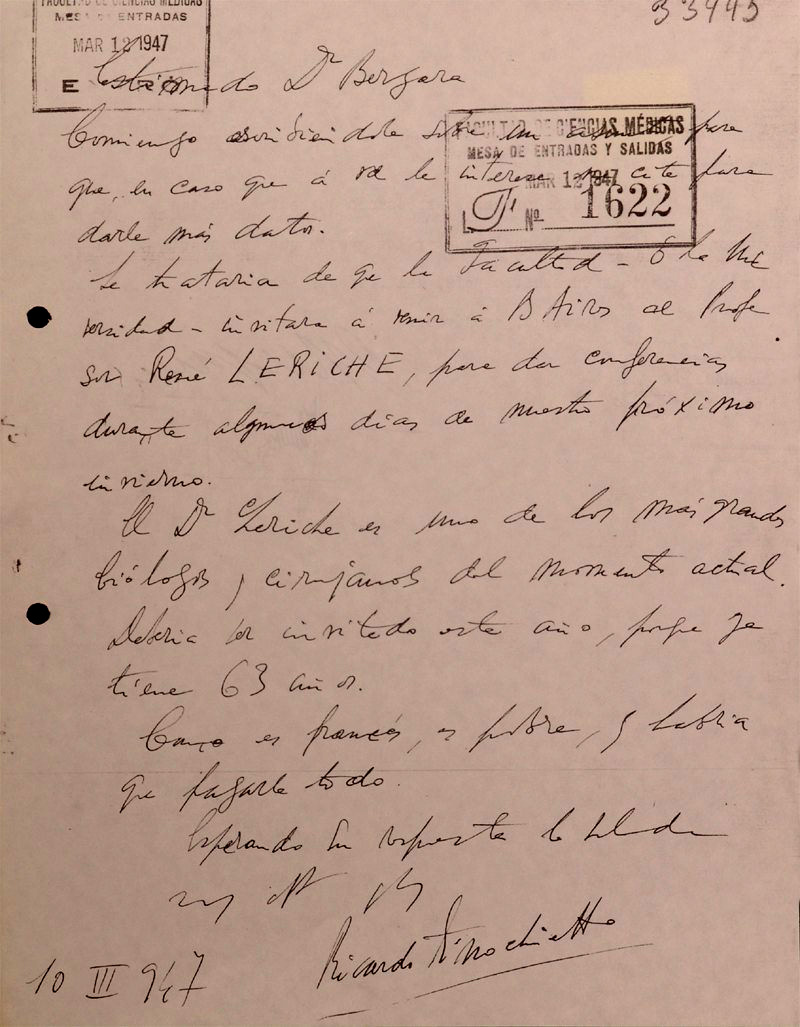 33445
FACULTAD DE CIENCIAS MÉDICAS
MESA DE ENTRADAS
MAR 12 1947
E
Estimado Dr Bergara
FACULTAD DE CIENCIAS MÉDICAS
MESA DE ENTRADAS Y SALIDAS
MAR 12 1947
Nº 1622
Comienzo escribiendole sobre un para
que, en caso que á Vd le interese me cite para
darle más datos.
Se trataria de qe la Facultad - O la Uni
versidad - invitara á venir á B Aires al Profe
sor René LERICHE, para dar conferencias
durante algunos dias de nuestro próximo
invierno.
El Dr Leriche es uno de los más grandes
biólogos y cirujanos del momento actual.
Deberia ser invitado este año, porqe ya
tiene 63 años.
Como es francés, es pobre, y habria
que pagarle todo.
Esperando su respuesta lo saluda
Ricardo Finochietto
10 III 947